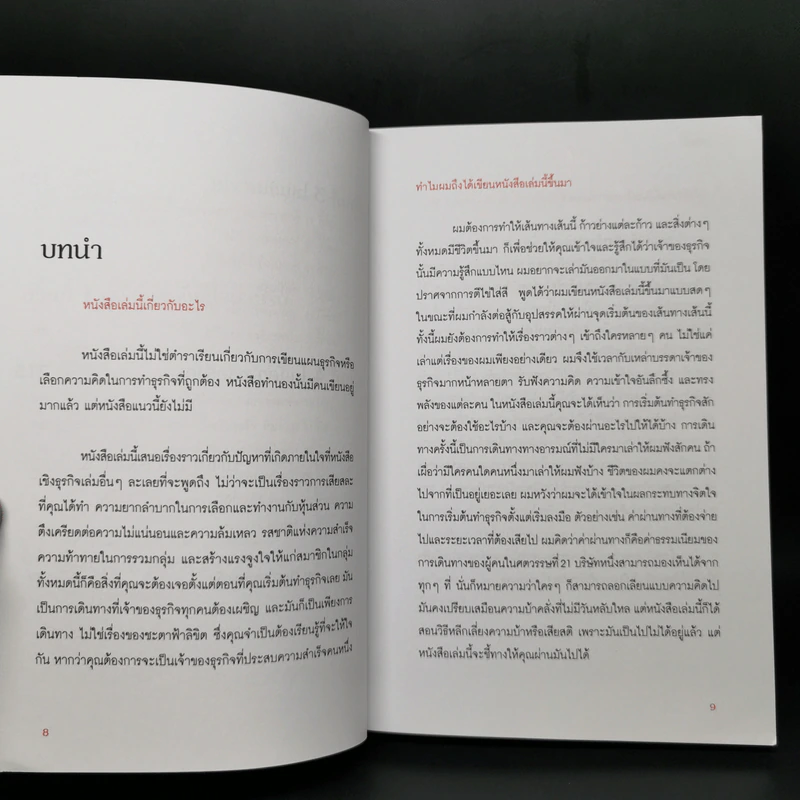 บทนำ
หนังสือเล่มนี้เกี่ยวกับอะไร
หนังสือเล่มนี้ไม่ใช่ตำราเรียนเกี่ยวกับการเขียนแผนธุรกิจหรือ
เลือกความคิดในการทำธุรกิจที่ถูกต้อง หนังสือทำนองนั้นมีคนเขียนอยู่
มากแล้ว แต่หนังสือแนวนี้ยังไม่มี
หนังสือเล่มนี้เสนอเรื่องราวเกี่ยวกับปัญหาที่เกิดภายในใจที่หนังสือ
เชิงธุรกิจเล่มอื่นๆ ละเลยที่จะพูดถึง ไม่ว่าจะเป็นเรื่องราวการเสียสละ
ที่คุณได้ทำ ความยากลำบากในการเลือกและทำงานกับหุ้นส่วน ความ
ตึงเครียดต่อความไม่แน่นอนและความล้มเหลว รสชาติแห่งความสำเร็จ
ความท้าทายในการรวมกลุ่ม และสร้างแรงจูงใจให้แก่สมาชิกในกลุ่ม
ทั้งหมดนี้ก็คือสิ่งที่คุณจะต้องเจอตั้งแต่ตอนที่คุณเริ่มต้นทำธุรกิจเลย มัน
เป็นการเดินทางที่เจ้าของธุรกิจทุกคนต้องเผชิญ และมันก็เป็นเพียงการ
เดินทาง ไม่ใช่เรื่องของชะตาฟ้าลิขิต ซึ่งคุณจำเป็นต้องเรียนรู้ที่จะให้ใจ
กัน หากว่าคุณต้องการจะเป็นเจ้าของธุรกิจที่ประสบความสำเร็จคนหนึ่ง
8
ทำไมผมถึงได้เขียนหนังสือเล่มนี้ขึ้นมา
ผมต้องการทำให้เส้นทางเส้นนี้ ก้าวย่างแต่ละก้าว และสิ่งต่างๆ
ทั้งหมดมีชีวิตขึ้นมา ก็เพื่อช่วยให้คุณเข้าใจและรู้สึกได้ว่าเจ้าของธุรกิจ
นั้นมีความรู้สึกแบบไหน ผมอยากจะเล่ามันออกมาในแบบที่มันเป็น โดย
ปราศจากการตีไข่ใส่สี พูดได้ว่าผมเขียนหนังสือเล่มนี้ขึ้นมาแบบสดๆ
ในขณะที่ผมกำลังต่อสู้กับอุปสรรคให้ผ่านจุดเริ่มต้นของเส้นทางเส้นนี้
ทั้งนี้ผมยังต้องการทำให้เรื่องราวต่างๆ เข้าถึงใครหลายๆ คน ไม่ใช่แค่
เล่าแต่เรื่องของผมเพียงอย่างเดียว ผมจึงใช้เวลากับเหล่าบรรดาเจ้าของ
ธุรกิจมากหน้าหลายตา รับฟังความคิด ความเข้าใจอันลึกซึ้ง และทรง
พลังของแต่ละคน ในหนังสือเล่มนี้คุณจะได้เห็นว่า การเริ่มต้นทำธุรกิจสัก
อย่างจะต้องใช้อะไรบ้าง และคุณจะต้องผ่านอะไรไปให้ได้บ้าง การเดิน
ทางครั้งนี้เป็นการเดินทางทางอารมณ์ที่ไม่มีใครมาเล่าให้ผมฟังสักคน ถ้า
เผื่อว่ามีใครคนใดคนหนึ่งมาเล่าให้ผมฟังบ้าง ชีวิตของผมคงจะแตกต่าง
ไปจากที่เป็นอยู่เยอะเลย ผมหวังว่าผมจะได้เข้าใจในผลกระทบทางจิตใจ
ในการเริ่มต้นทำธุรกิจตั้งแต่เริ่มลงมือ ตัวอย่างเช่น ค่าผ่านทางที่ต้องจ่าย
ไปและระยะเวลาที่ต้องเสียไป ผมคิดว่าค่าผ่านทางก็คือค่าธรรมเนียมของ
การเดินทางของผู้คนในศตวรรษที่ 21 บริษัทหนึ่งสามารถมองเห็นได้จาก
ทุกๆ ที่ นั่นก็หมายความว่าใครๆ ก็สามารถลอกเลียนแบบความคิดไป
มันคงเปรียบเสมือนความบ้าคลั่งที่ไม่มีวันหลับไหล แต่หนังสือเล่มนี้ก็ได้
สอนวิธีหลีกเลี่ยงความบ้าหรือเสียสติ เพราะมันเป็นไปไม่ได้อยู่แล้ว แต่
หนังสือเล่มนี้จะชี้ทางให้คุณผ่านมันไปได้
9